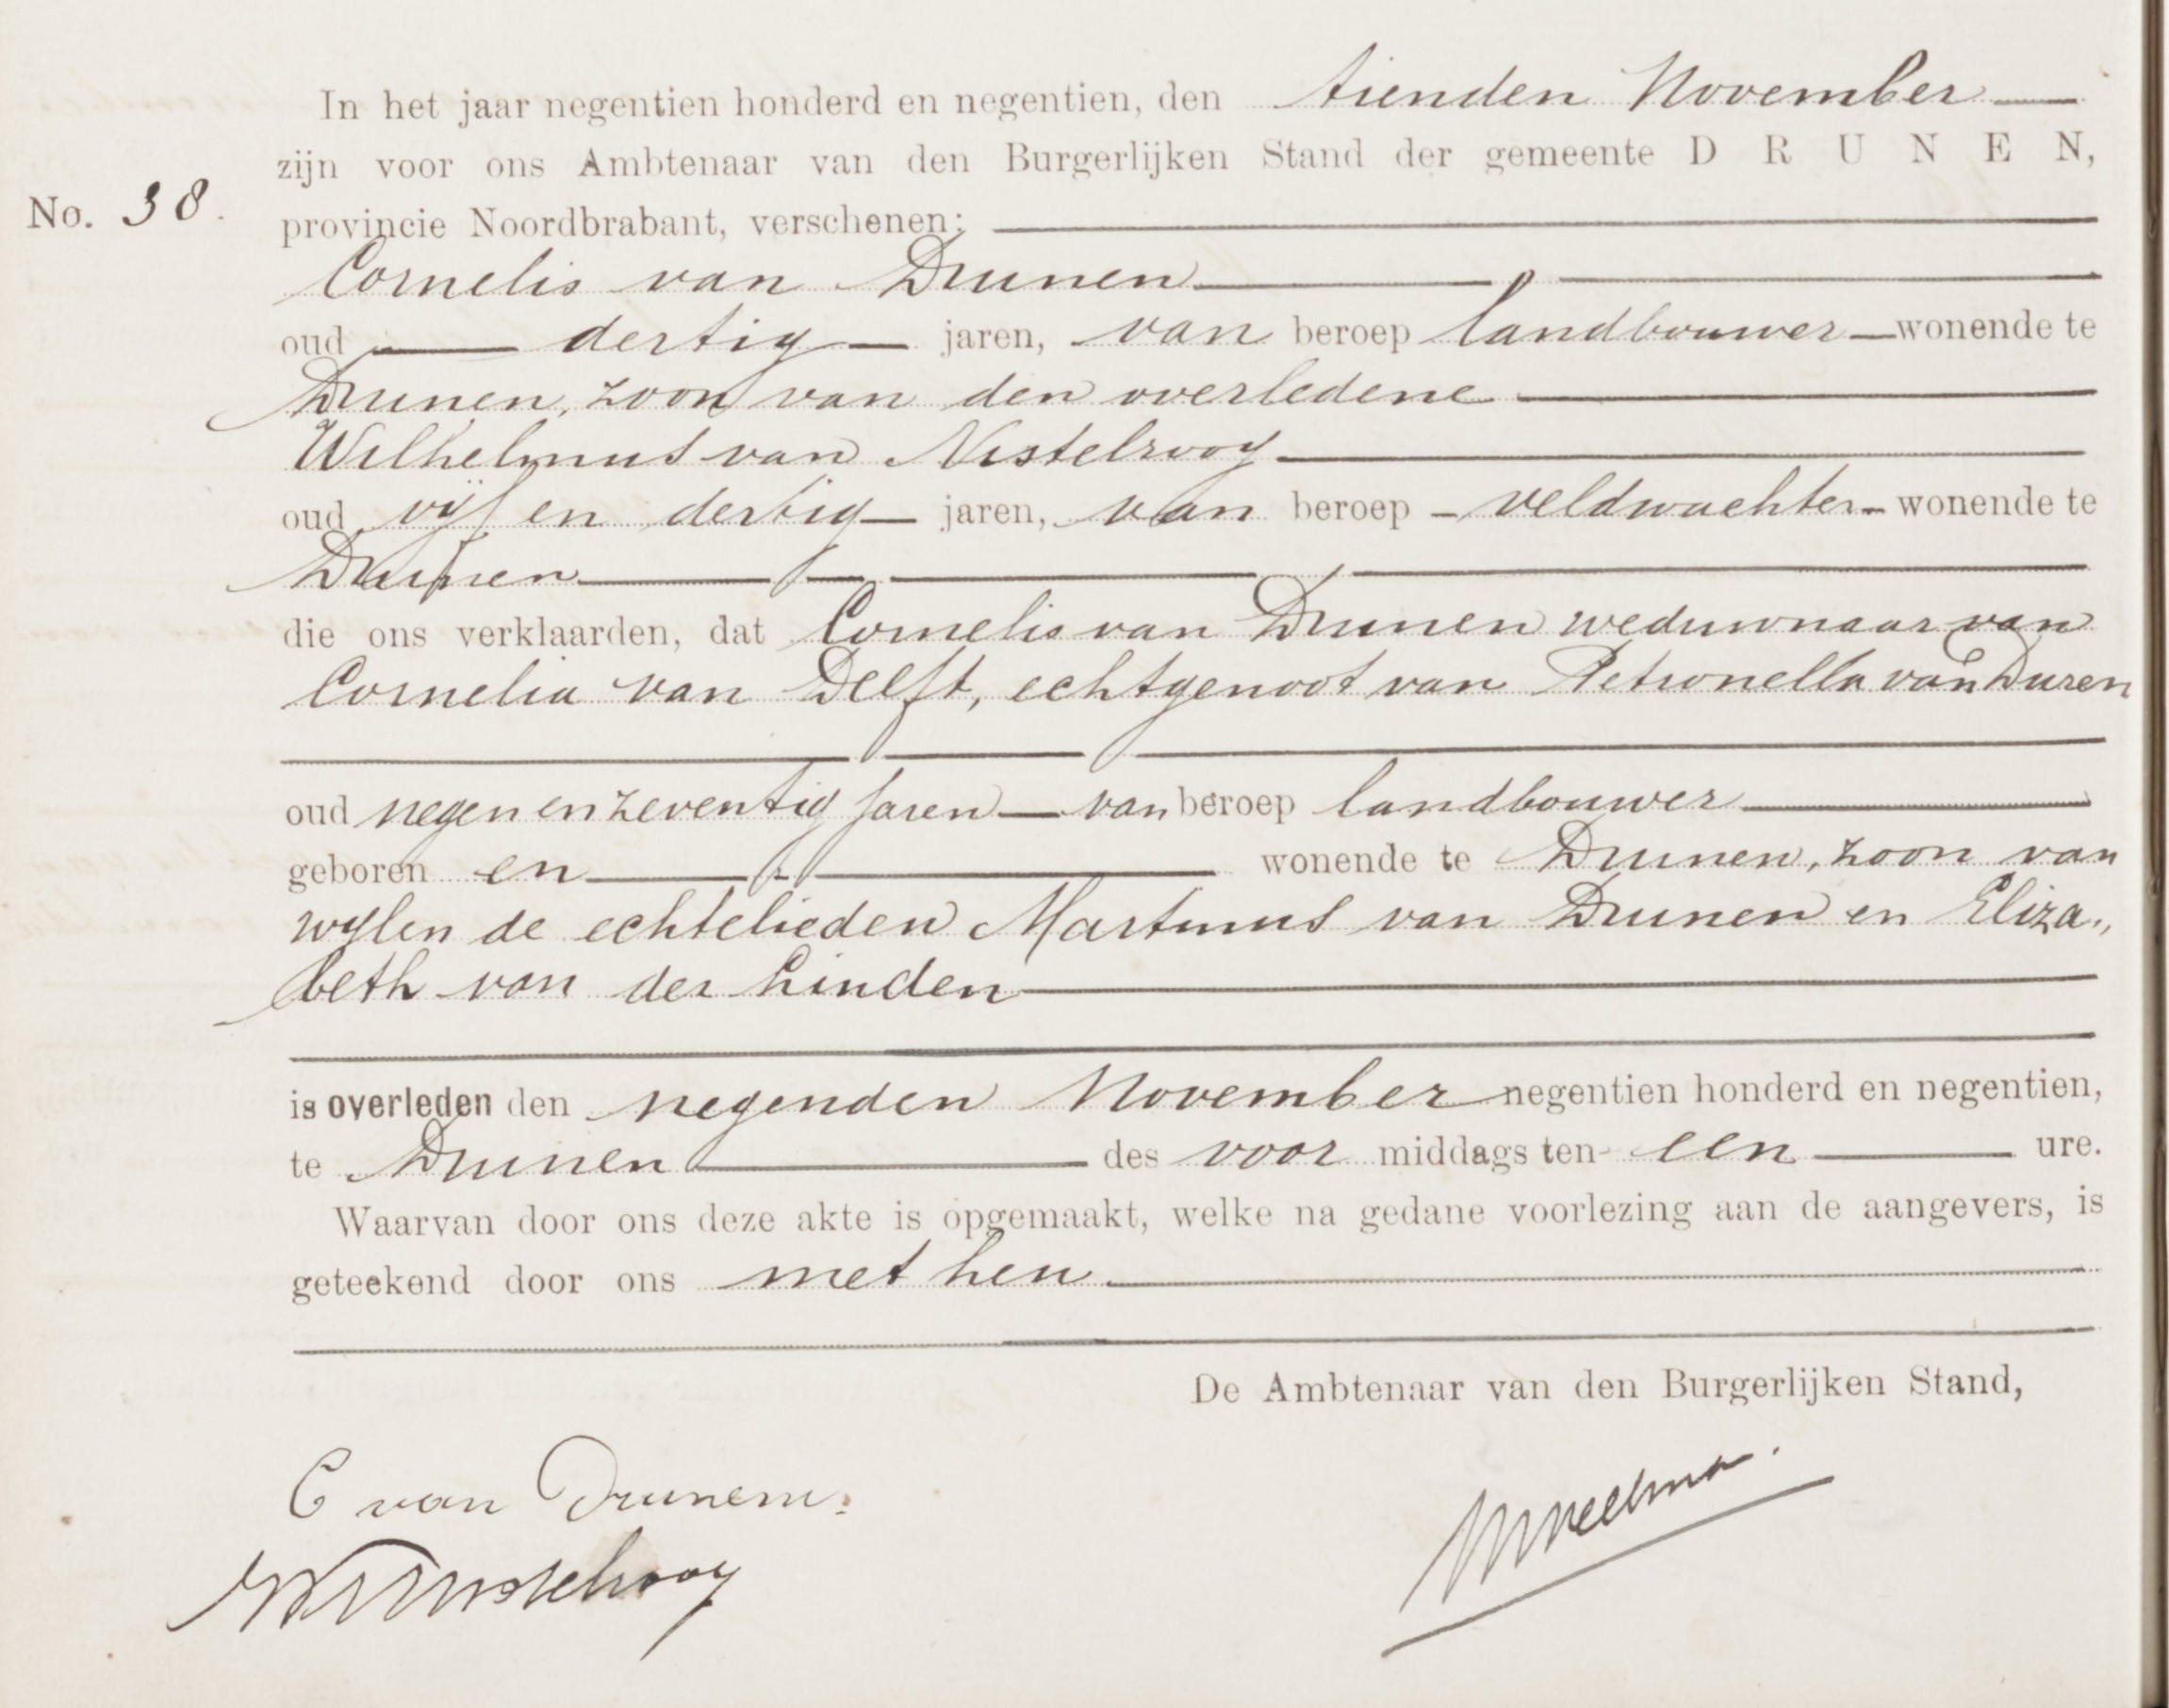 In het jaar negentien honderd en negentien, den tienden November
zijn voor ons Ambtenaar van den Burgerlijken Stand der gemeente D R U N E N,
No. 38.
provincie Noordbrabant, verschenen:
Cornelis van Drunen
oud dertig jaren, van beroep landbouwer wonende te
Drunen, zoon van den overledene
Wilhelmus van Nistelrooy
oud vijf en dertig jaren, van beroep veldwachter wonende te
Drunen
die ons verklaarden, dat Cornelis van Drunen weduwnaar van
Cornelia van Delft, echtgenoot van Petronella van Duren
oud negen en zeventig jaren van beroep landbouwer
geboren en wonende te Drunen, zoon van
wijlen de echtelieden Martinus van Drunen en Eliza„
beth van der Linden
is overleden den negenden November negentien honderd en negentien,
te Drunen des voor middags ten een ure.
Waarvan door ons deze akte is opgemaakt, welke na gedane voorlezing aan de aangevers, is
geteekend door ons met hen.
De Ambtenaar van den Burgerlijken Stand,
C van Drunen.